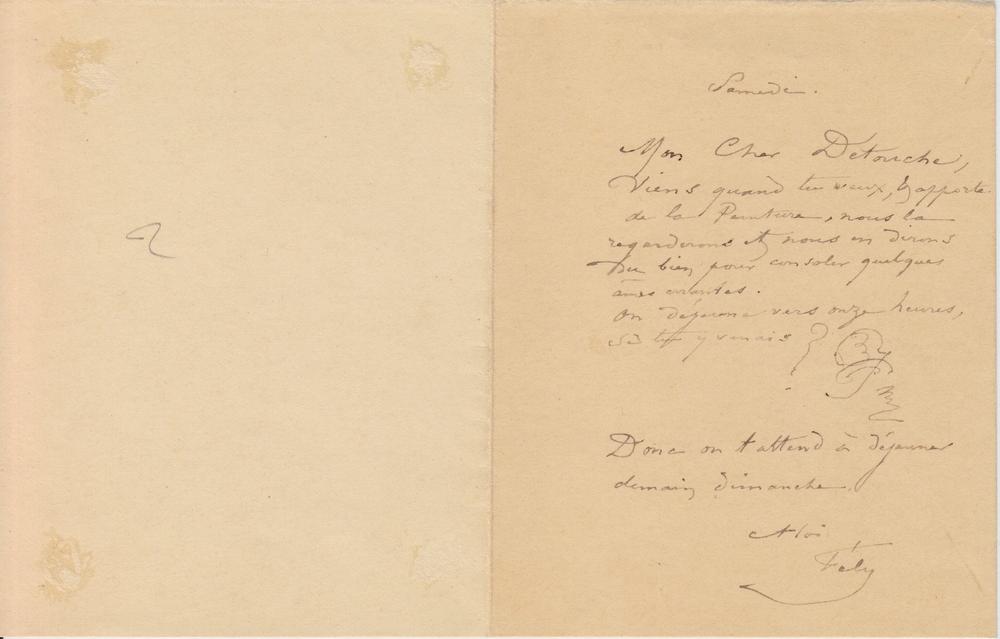 Samedi.
Mon Cher Detouche,
Viens quand tu veux, & apporte
de la Peinture, nous la
regarderons & nous en dirons
du bien pour consoler quelques
âmes errantes.
On déjeune vers onze heures,
si tu y venais ?
Donc on t'attend à déjeuner
demain dimanche.
A toi
Fély